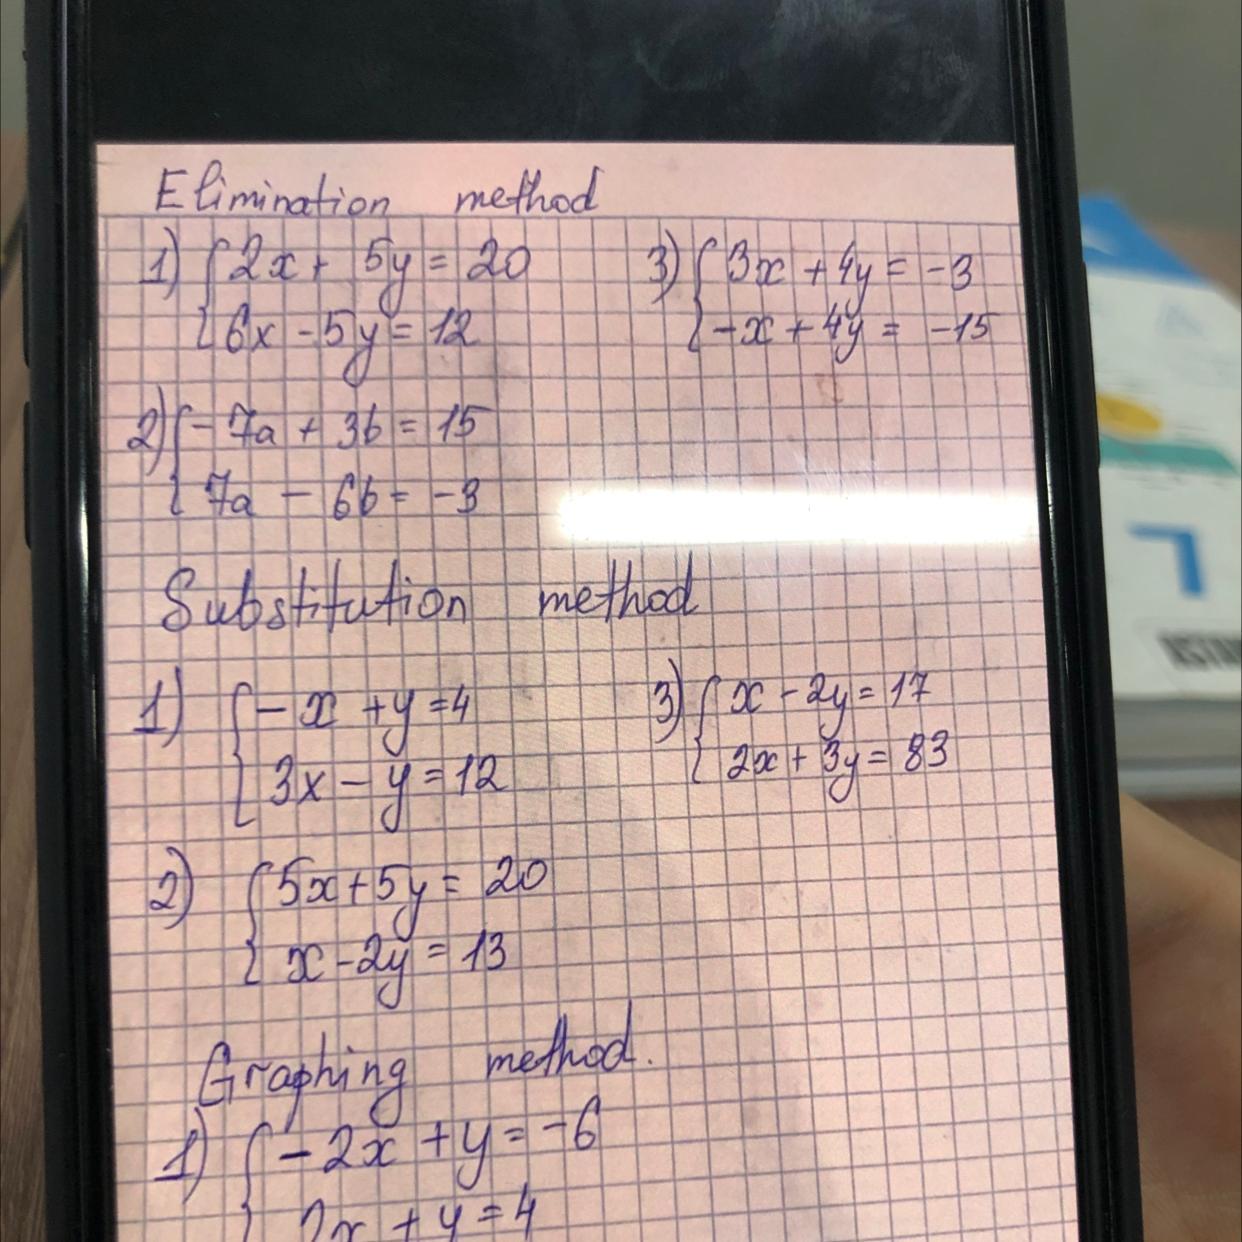 Elimination method
1) { 2x + 5y = 20
6x - 5y = 12
3) { 3x + 4y = -3
-x + 4y = -15
2) { -7a + 3b = 15
7a - 6b = -3
Substitution method
1) { -x + y = 4
3x - y = 12
3) { x - 2y = 17
2x + 3y = 83
2) { 5x + 5y = 20
x - 2y = 13
Graphing method.
1) { -2x + y = -6
2x + y = 4
7